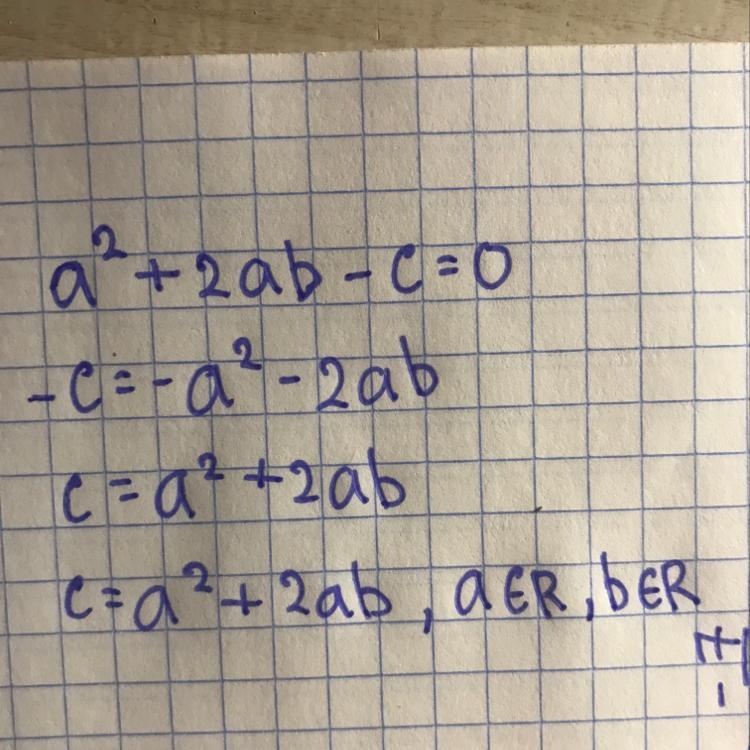 a² + 2ab - c = 0
-c = -a² - 2ab
c = a² + 2ab
c = a² + 2ab , a∈R , b∈R